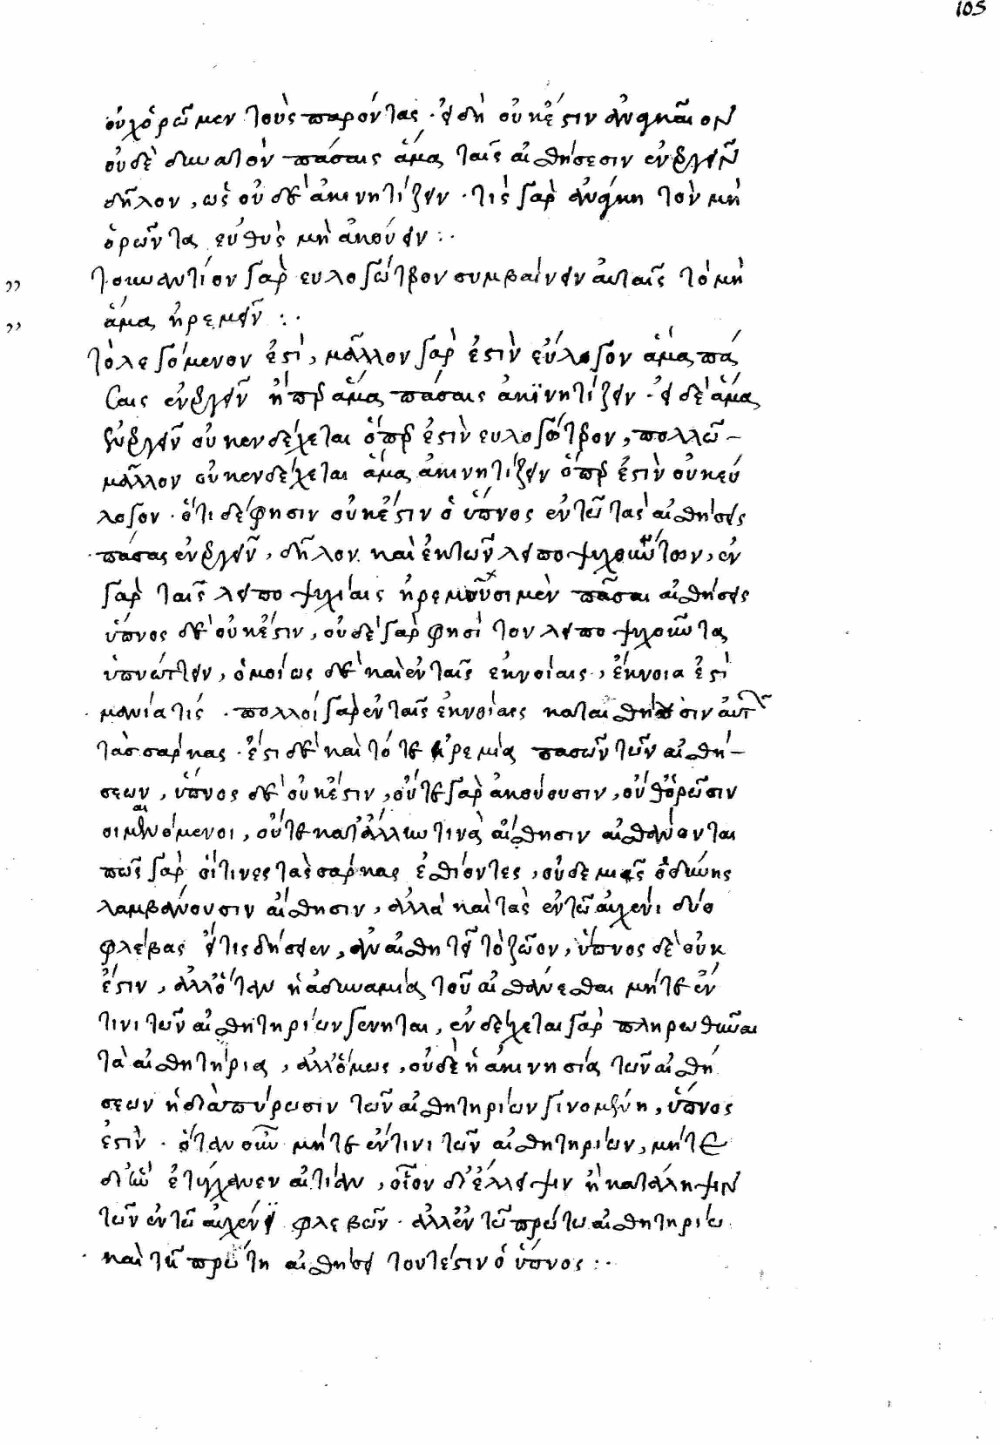 105
οὐχ ὁρῶμεν τοὺς παρόντας · εἰ δὴ οὐκ ἔστιν ἀναγκαῖον
οὐδὲ δυνατὸν πάσαις ἅμα ταῖς αἰσθήσεσιν ἐνεργεῖν
δῆλον, ὡς οὐδὲ ἀκινητίζειν · τίς γὰρ ἀνάγκη τὸν μὴ
ὁρῶντα εὐθὺς μὴ ἀκούειν :·
,, τοὐναντίον γὰρ εὐλογώτερον συμβαίνειν αὐταῖς τὸ μὴ
,, ἅμα ἠρεμεῖν :·
τὸ λεγόμενον ἐστὶ, μᾶλλον γὰρ ἐστὶν εὔλογον ἅμα πά
σαις ἐνεργεῖν ἤπερ ἅμα πάσαις ἀκϊνητίζειν · εἰ δὲ ἅμα
ἐνεργεῖν οὐκ ἐνδέχεται ὅπερ ἐστὶν εὐλογώτερον, πολλῶ –
μᾶλλον οὐκ ἐνδέχεται ἅμα ἀκινητίζειν ὅπερ ἐστὶν οὐκ εὔ
λογον · ὅτι δέ φησιν οὐκ ἔστιν ὁ ὕπνος ἐν τῶ τὰς αἰσθήσεις
πάσας ἐνεργεῖν, δῆλον καὶ ἐκ τῶν λειποψυχούντων, ἐν
γὰρ ταῖς λειποψυχίαις ἠρεμοῦσι μὲν πᾶσαι αἰσθήσεις
ὕπνος δὲ οὐκ ἔστιν, οὐδὲ γὰρ φησὶ τὸν λειποψυχοῦντα
ὑπνώττειν, ὁμοίως δὲ καὶ ἐν ταῖς ἐκνοίαις, ἔκνοια ἐστὶ
μανία τίς · πολλοὶ γὰρ ἐν ταῖς ἐκνοίαις κατεσθίουσιν αὐτῶν
τὰς σάρκας · ἔστι δὲ καὶ τότε ἠρεμία πασῶν τῶν αἰσθή –
σεων, ὕπνος δὲ οὐκ ἔστιν, οὔτε γὰρ ἀκούουσιν, οὔθ' ὁρῶσιν
οἱ μαινόμενοι, οὔτε κατ' ἄλλην τινὰ αἴσθησιν αἰσθάνονται
πῶς γὰρ οἵτινες τὰς σάρκας ἐσθίοντες, οὐδεμιᾶς ὀδύνης
λαμβάνουσιν αἴσθησιν, ἀλλὰ καὶ τὰς ἐν τῶ αὐχένι δύο
φλέβας εἴ τις δήσειεν, ἀναισθητεῖ τὸ ζῶον, ὕπνος δὲ οὐκ
ἔστιν, ἀλλ' ὅταν ἡ ἀδυναμία τοῦ αἰσθάνεσθαι μήτε ἔν
τινι τῶν αἰσθητηρίων γένηται, ἐνδέχεται γὰρ πληρωθῆναι
τὰ αἰσθητήρια, ἀλλ' ὅμως, οὐδὲ ἡ ἀκινησία τῶν αἰσθή
σεων ἡ διὰ πύρωσιν τῶν αἰσθητηρίων γινομένη, ὕπνος
ἐστὶν · ὅταν οὖν μήτε ἔν τινι τῶν αἰσθητηρίων, μήτε
δι' ἣν ἐτύγχανεν αἰτίαν, οἷον δι' ἔλλειψιν ἢ κατάληψιν
τῶν ἐν τῶ αὐχένι φλεβῶν · ἀλλ' ἐν τῶ πρώτω αἰσθητηρίω
καὶ τῆ πρώτη αἰσθήσει τοῦτ' ἔστιν ὁ ὕπνος :·